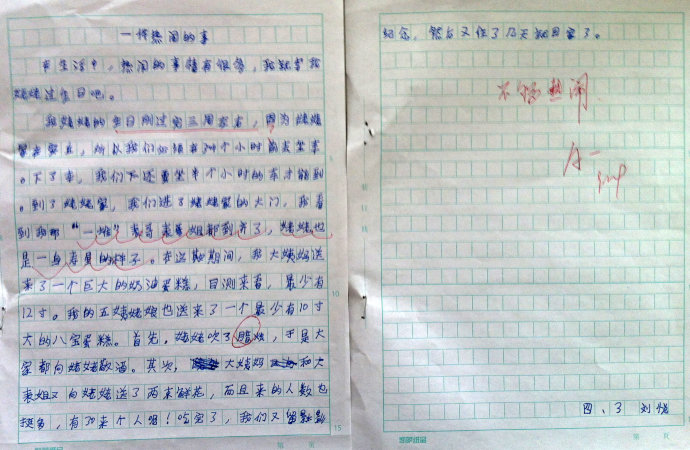 一件热闹的事
在生活中，热闹的事情有很多，我就拿我
姥姥过生日吧。
我姥姥的生日刚过完三周左右，因为姥姥
家在，所以我们必须在24个小时前去坐车
。下了车，我们下还要坐半个小时的车才能到
。到了姥姥家，我们进了姥姥家的大门，我看
到我那“一堆”表哥表姐都到齐了，姥姥也
是一身寿星的样子。在这期间，我大姨妈送
来了一个巨大的奶油蛋糕，目测来看，最少有
12寸。我的五姨姥娘也送来了一个最少有10寸
大的八宝蛋糕。首先，姥姥吹了蜡烛，于是大
家都向姥姥敬酒。其次，大姨妈和大
表姐又向姥姥送了两束鲜花，而且来的人数也
挺多，有30来个人呢！吃完了，我们又留影
15
第 页
纪念，然后又住了几天就回家了。
不够热闹
A-
四、3 刘
第 页